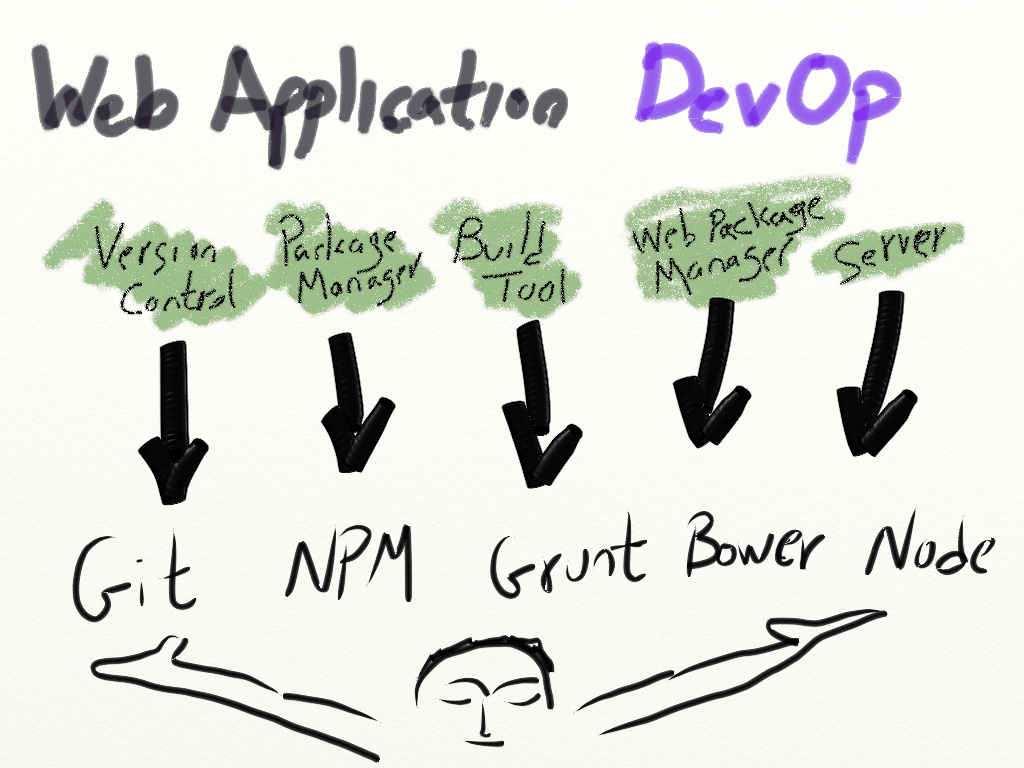 Web Application DevOp
Version Control
Package Manager
Build Tool
Web Package Manager
Server
Git NPM Grunt Bower Node